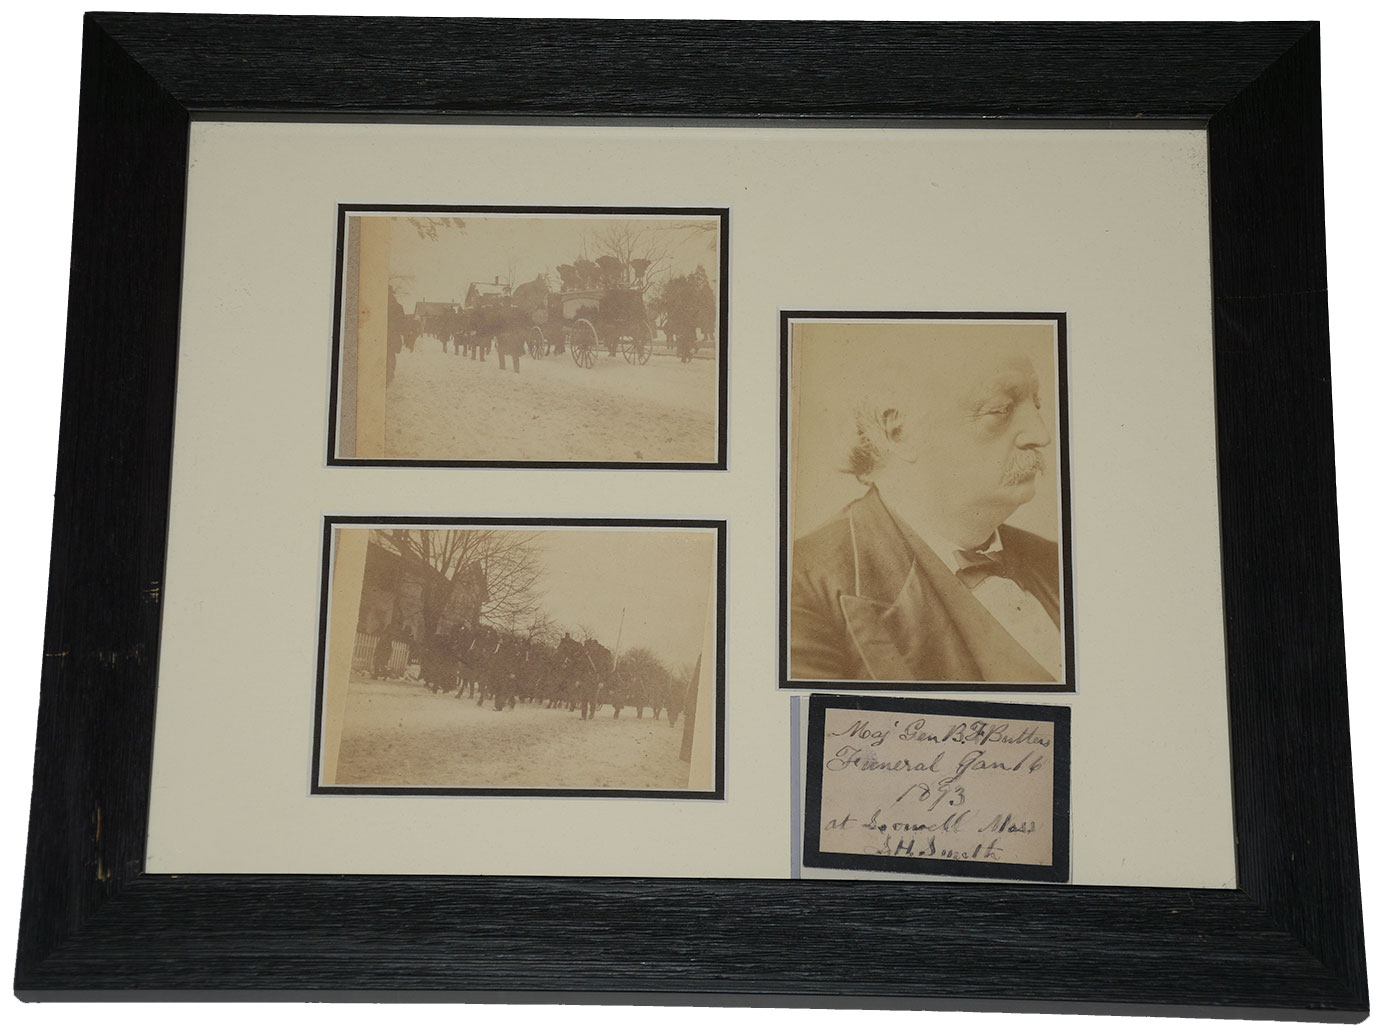 Maj Gen B. F. Butlers
Funeral Jan 16
1893
at Lowell Mass
S. H. Smith